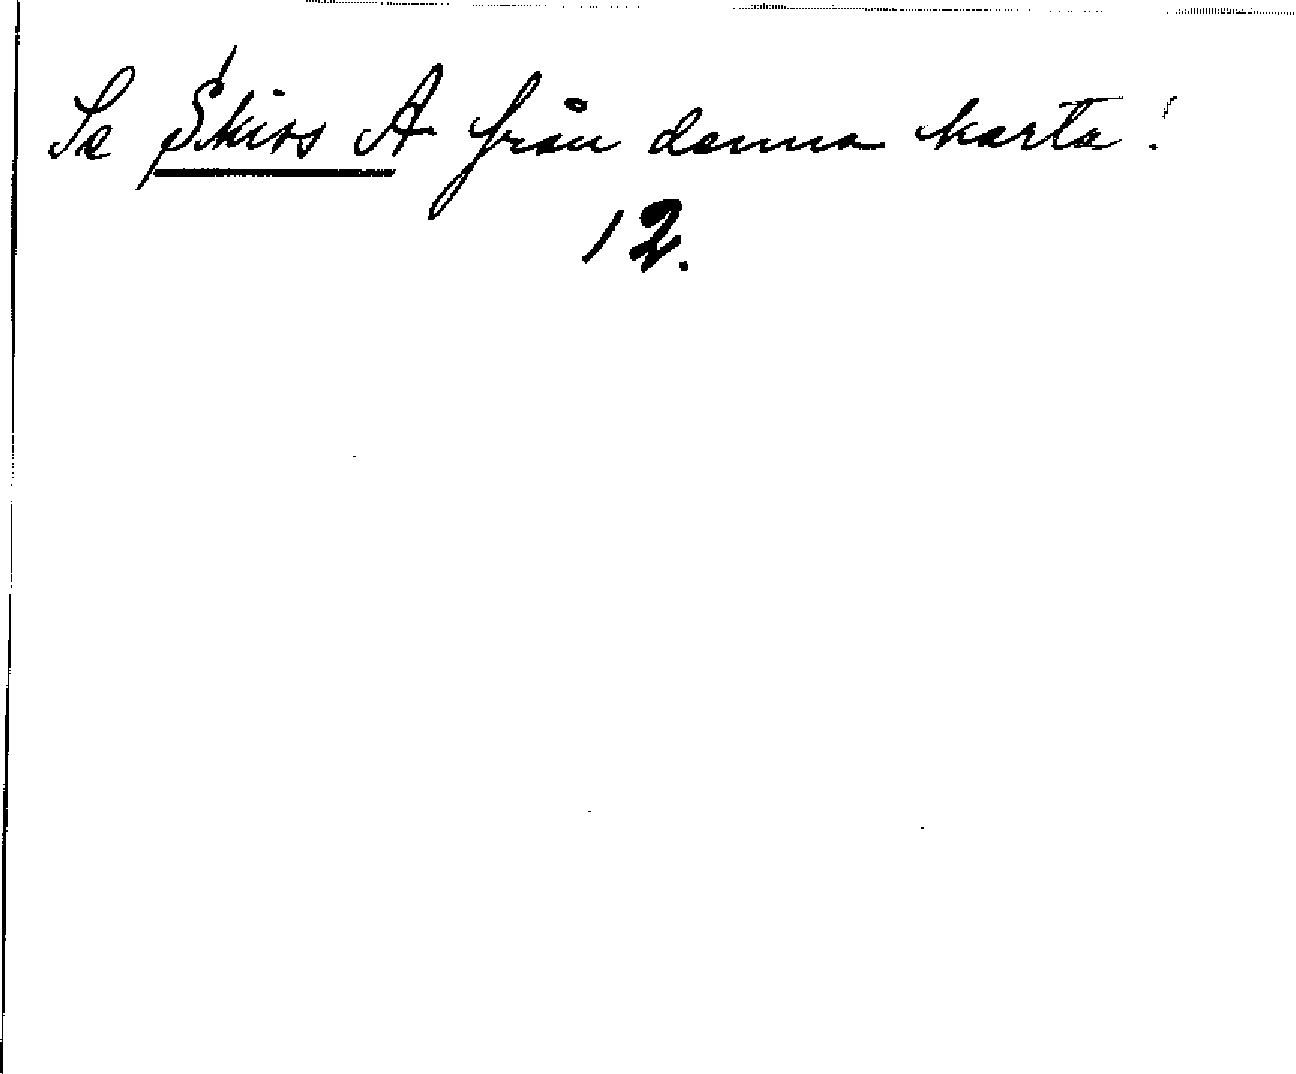 Se Skirs A från denna karta!
12.